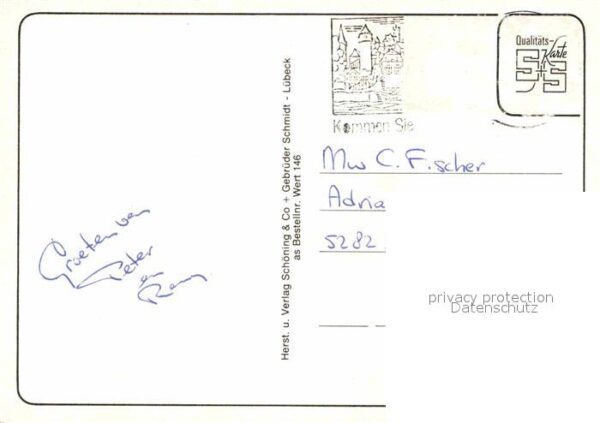 Qualitäts-
Karte
S+S
Kommen Sie
Mw C. Fischer
Adria
5282
Groeten van
Peter
en
Herst. u. Verlag Schöning & Co + Gebrüder Schmidt - Lübeck
as Bestellnr. Wert 146
privacy protection
Datenschutz